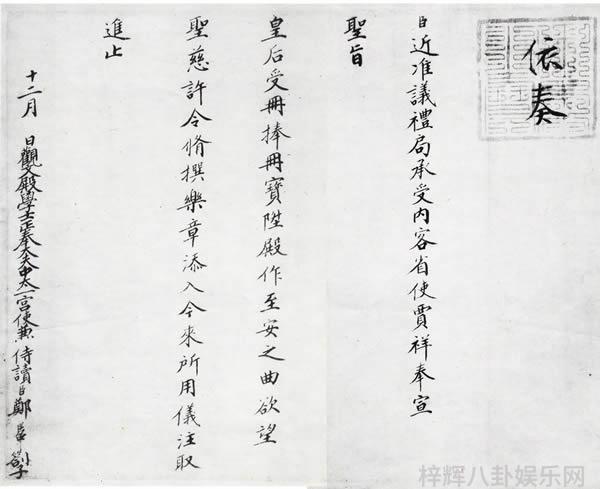 依奏
臣近准議禮局承受內客省使賈祥奉宣
聖旨
皇后受冊捧冊寶陞殿作至安之曲欲望
聖慈許令脩撰樂章添入今來所用儀注取
進止
十二月 日觀文殿學士正奉大夫中太一宮使兼侍讀臣鄭居中劄子
梓辉八卦娱乐网